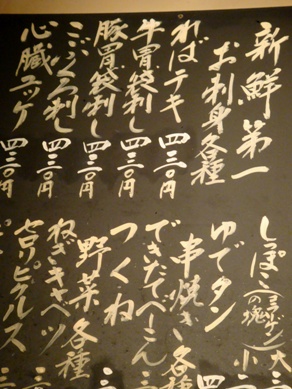 新鮮第一
お刺身各種
ればテキ 四三〇円
牛胃袋刺し 四三〇円
豚胃袋刺し 四三〇円
こころ刺し 四三〇円
心臓ユッケ 四三〇円
しっぽ(コラーゲンの塊)大
小
ゆでタン
串焼き各種
できたてべーこん
つくね
野菜各種
ねぎキャベツ
セロリピクルス